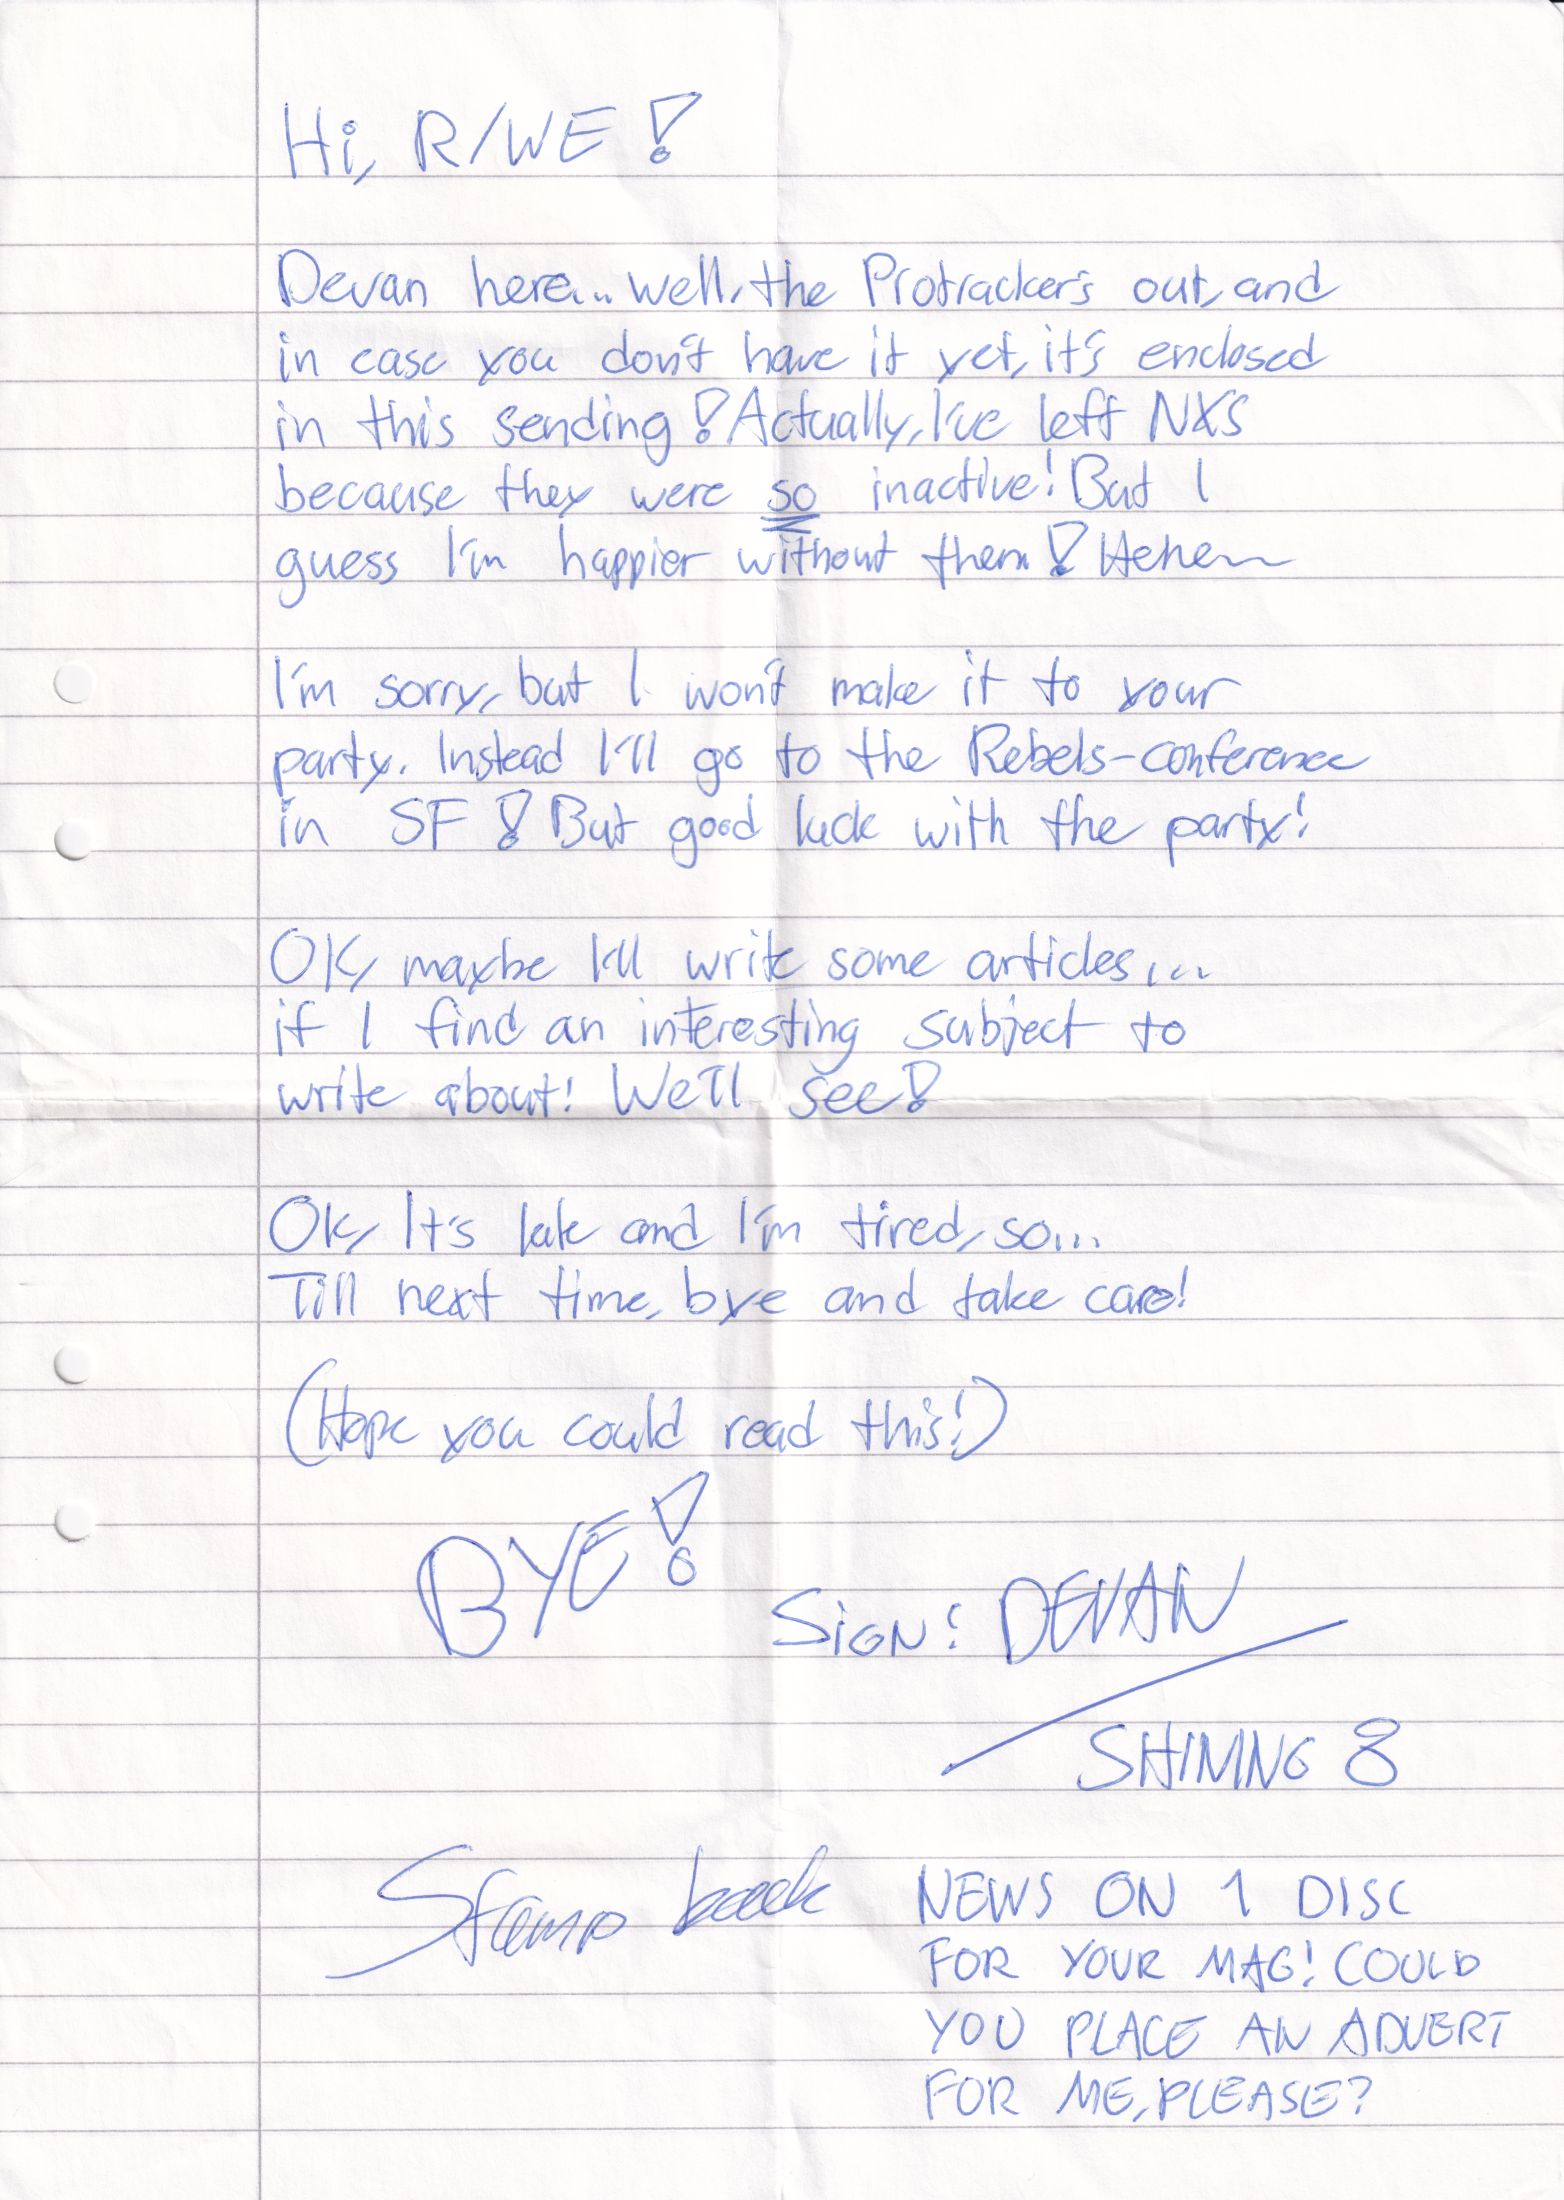 Hi, R/WE!
Devan here... well, the Protracker's out, and
in case you don't have it yet, it's enclosed
in this sending! Actually, I've left NXS
because they were so inactive! But I
guess I'm happier without them! Hehe
I'm sorry, but I won't make it to your
party. Instead I'll go to the Rebels-conference
in SF! But good luck with the party!
OK, maybe I'll write some articles...
if I find an interesting subject to
write about! We'll see!
Ok, It's late and I'm tired, so...
Till next time, bye and take care!
(Hope you could read this!)
BYE!
SIGN: DEVAN
/SHINING 8
Stamp back
NEWS ON 1 DISC
FOR YOUR MAG! COULD
YOU PLACE AN ADVERT
FOR ME, PLEASE?